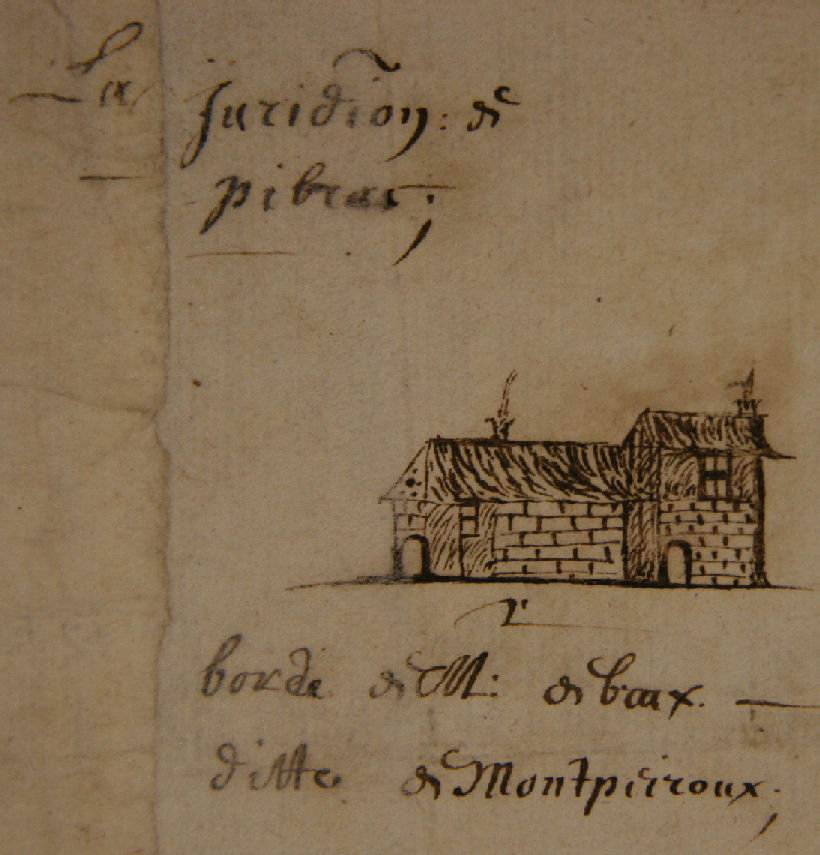 La Juridion: de
pibrac;
borde de Mr: de baux.
ditte de Montpeiroux;